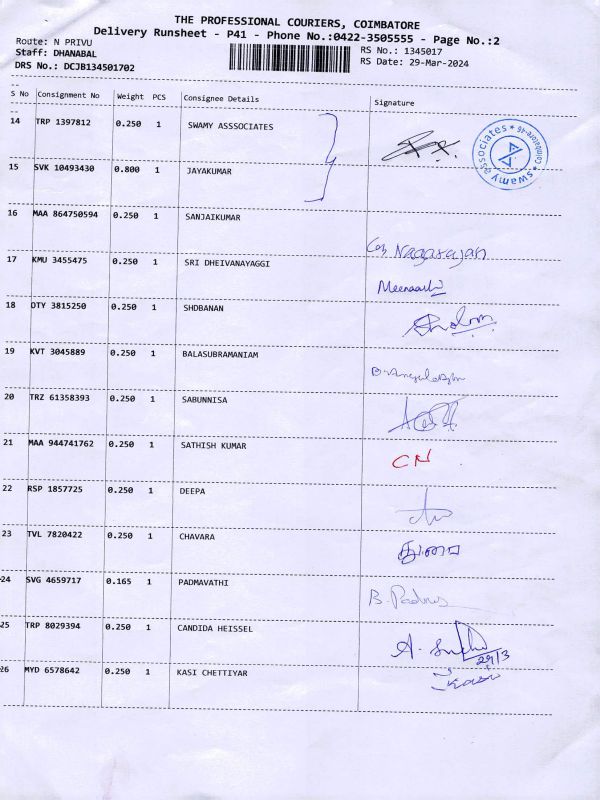 THE PROFESSIONAL COURIERS, COIMBATORE
Delivery Runsheet - P41 - Phone No.:0422-3505555 - Page No.:2
Route: N PRIVU RS No.: 1345017
Staff: DHANABAL RS Date: 29-Mar-2024
DRS No.: DCJB134501702
S No Consignment No Weight PCS Consignee Details Signature
14 TRP 1397812 0.250 1 SWAMY ASSSOCIATES
swamy associates * Coimbatore-46 *
15 SVK 10493430 0.800 1 JAYAKUMAR
16 MAA 864750594 0.250 1 SANJAIKUMAR Nagarajan
17 KMU 3455475 0.250 1 SRI DHEIVANAYAGGI Meenaashi
18 DTY 3815250 0.250 1 SHDBANAN
19 KVT 3045889 0.250 1 BALASUBRAMANIAM
20 TRZ 61358393 0.250 1 SABUNNISA
21 MAA 944741762 0.250 1 SATHISH KUMAR CN
22 RSP 1857725 0.250 1 DEEPA
23 TVL 7820422 0.250 1 CHAVARA
24 SVG 4659717 0.165 1 PADMAVATHI B. Padma
25 TRP 8029394 0.250 1 CANDIDA HEISSEL A.
29/3
26 MYD 6578642 0.250 1 KASI CHETTIYAR Kasi